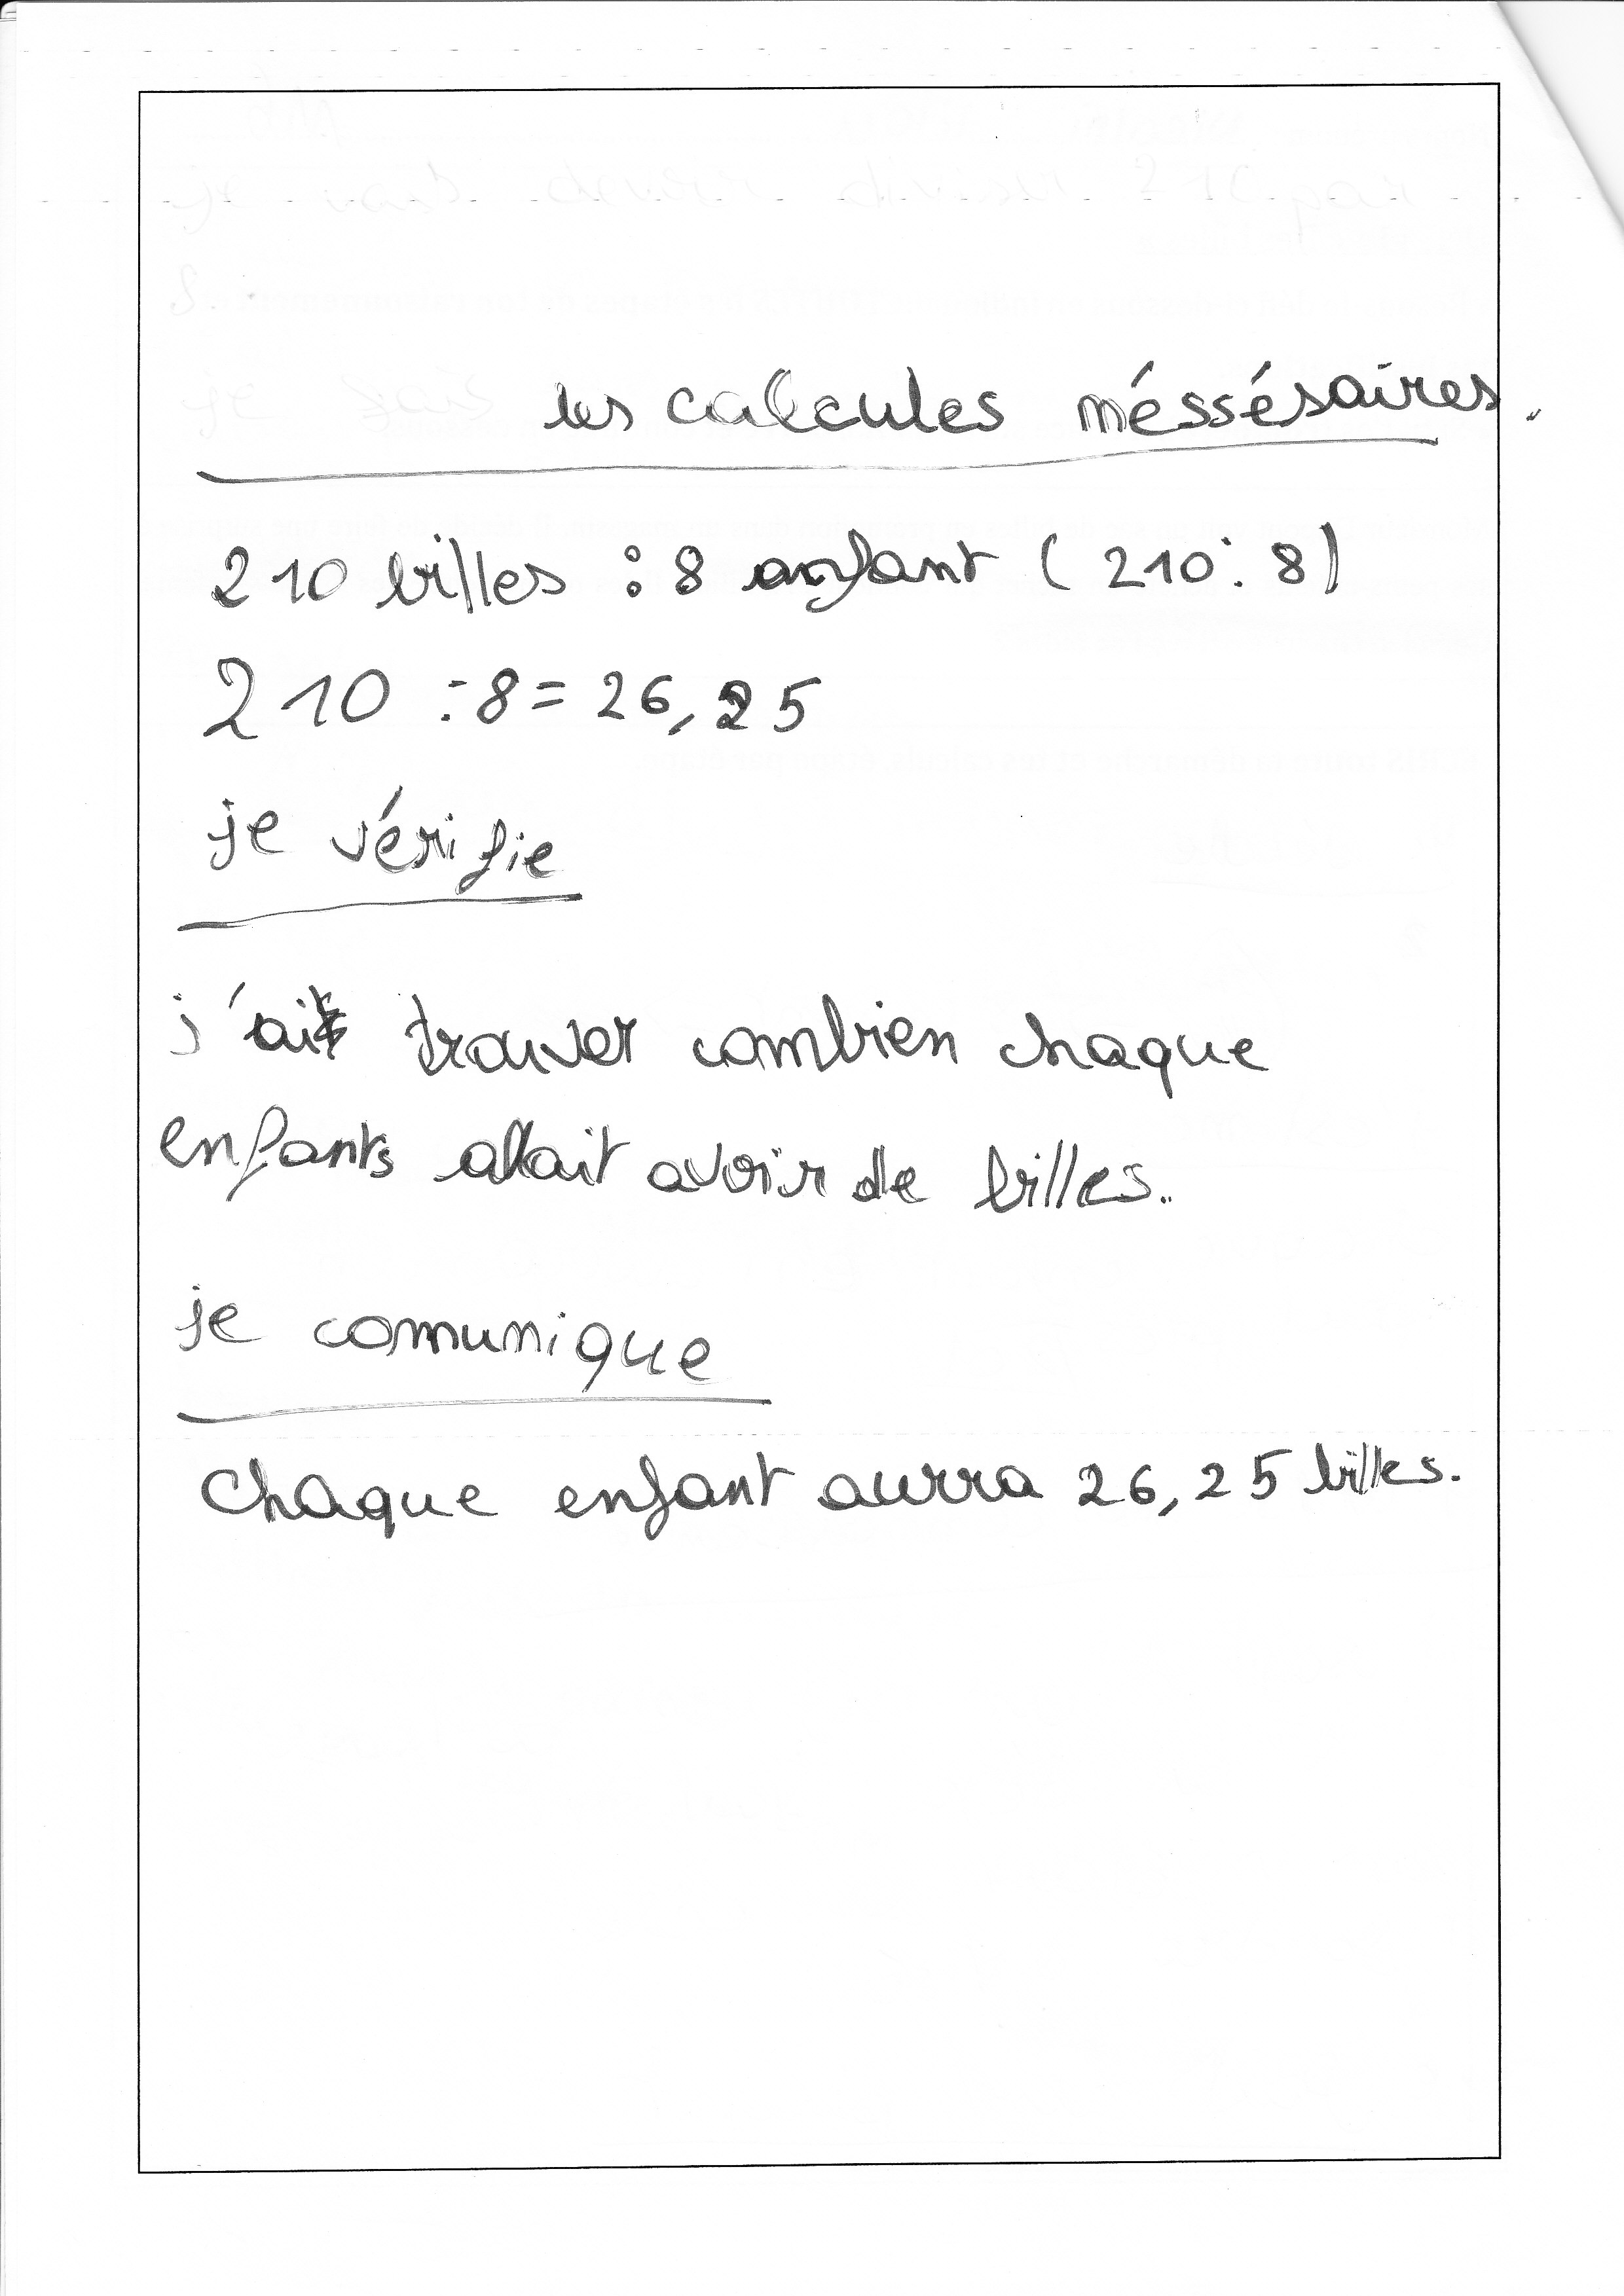 les calcules méssésaires.
210 billes : 8 enfant ( 210 : 8 )
210 : 8 = 26,25
je vérifie
j'ait trouver combien chaque
enfants allait avoir de billes.
je comunique
chaque enfant aurra 26,25 billes.